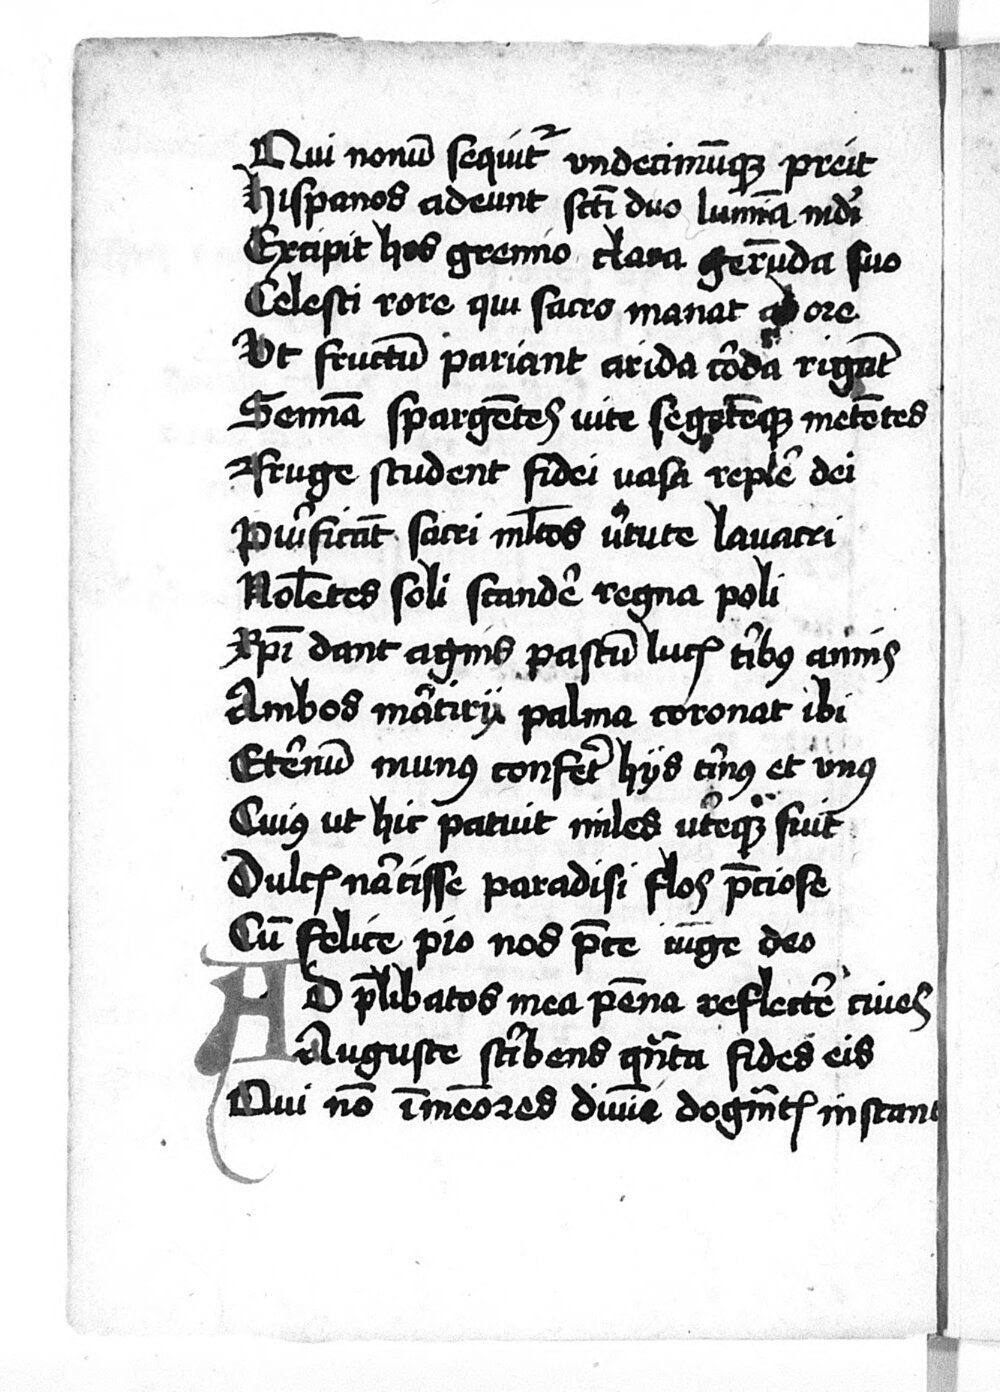 Qui nonū sequit᷑ vndecimūqꝫ preit
Hispanos adeunt sc̄ti duo lumīa mdi᷑
Excipit hos gremio clara gerūda suo
Celesti rore qui sacro manat ab ore
Vt fructū pariant arida cor̄da rigāt
Semīa spargētes vite segetēqꝫ metētes
Fruge student fidei vasa replē dei
Purificāt sacri mltos v̄tute lauacri
Nolētes soli scandē regna poli
Xp̄i dant agnis pastū lucꝭ tribꝰ annis
Ambos mārtirij palma coronat ibi
Etēnū munꝰ confert hijs trinꝰ et vnꝰ
Cuiꝰ ut hic patuit miles vterqꝫ fuit
Dulcꝭ nārcisse paradisi flos p̄ciose
Cū felice pio nos p̄ce iūge deo
AD p̄libatos mea pēna reflectē ciues
Auguste scribens qn̄ta fides eis
Qui nō īmēores diuīe dogm̄tꝭ instant